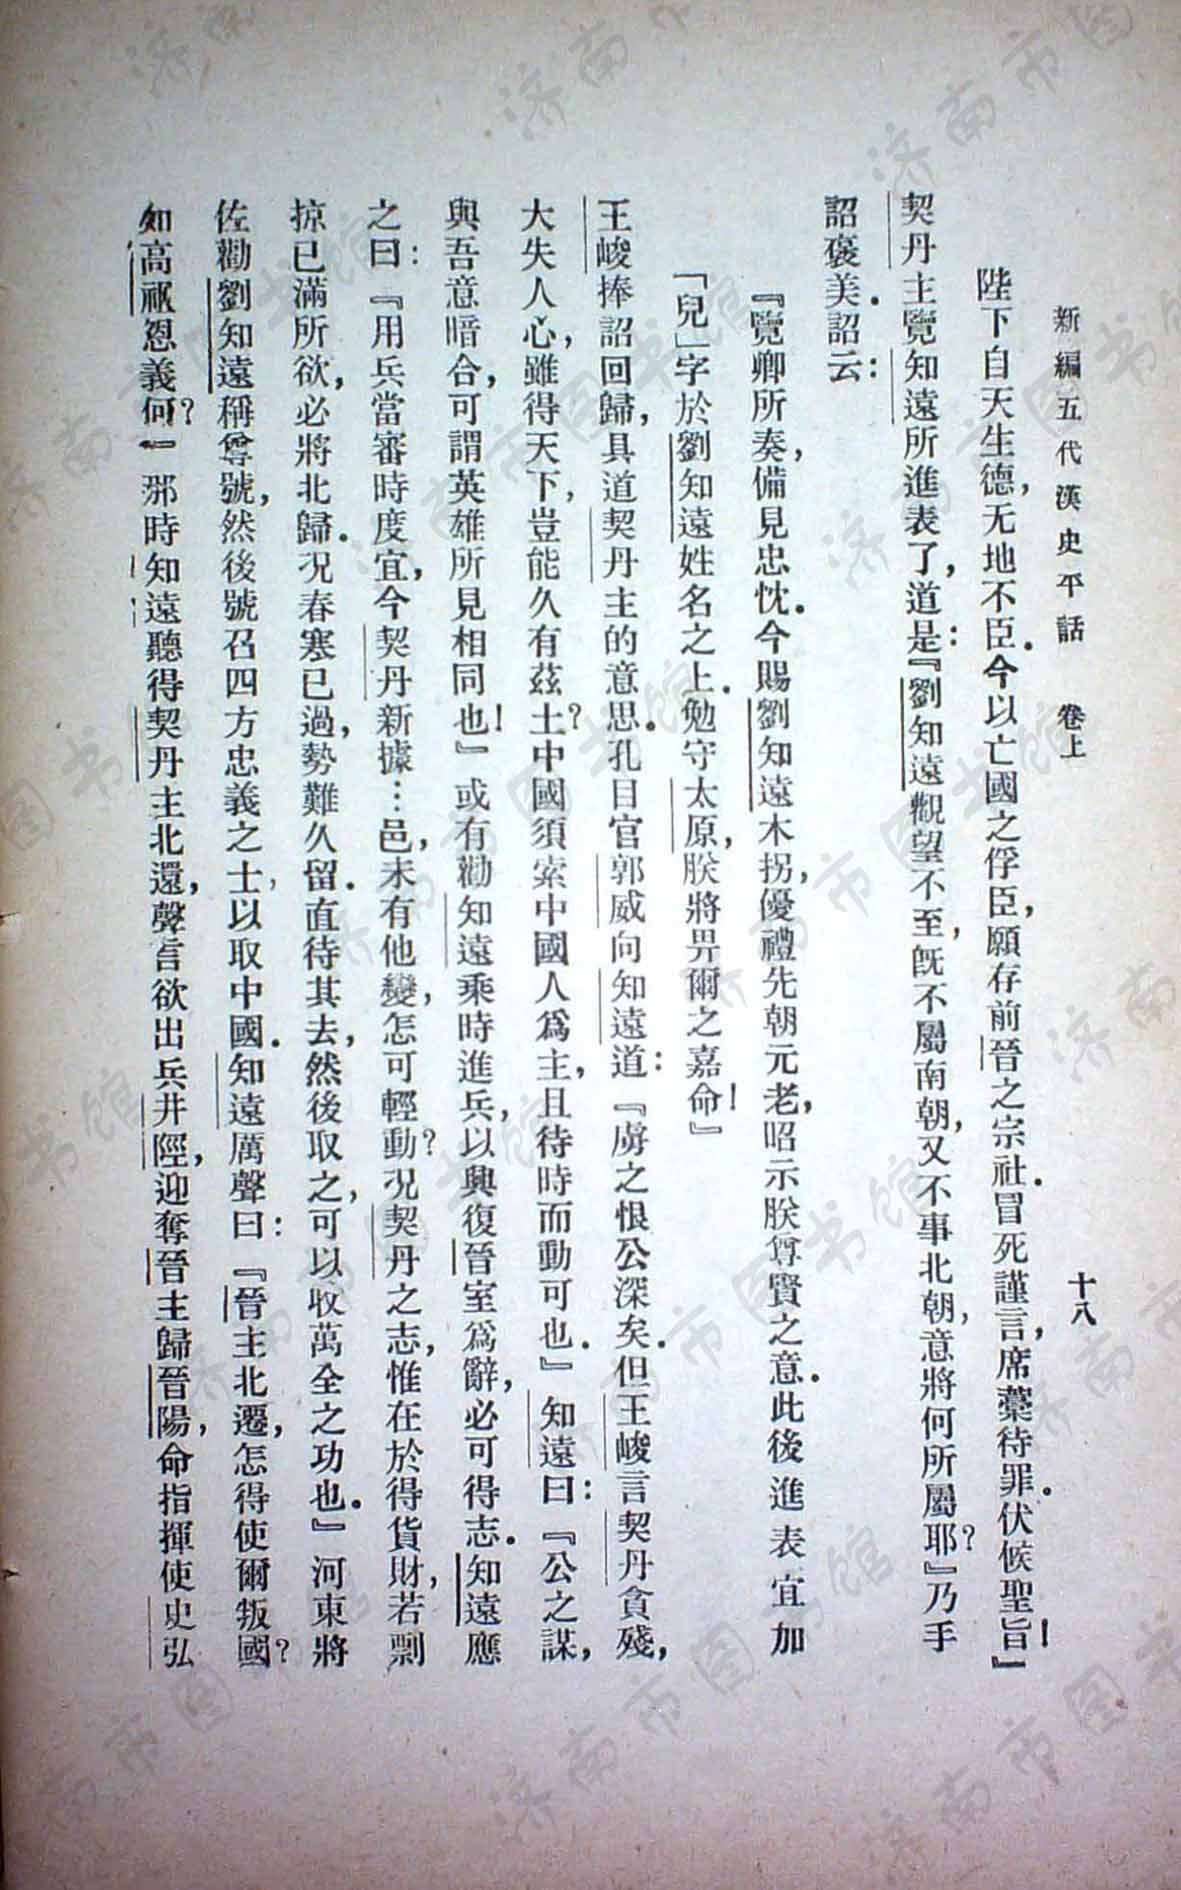 新編五代漢史平話　卷上　十八
陛下自天生德，无地不臣．今以亡國之俘臣，願存前晉之宗社．冒死謹言，席藁待罪．伏候聖旨！』
契丹主覽知遠所進表了，道是：『劉知遠觀望不至，旣不屬南朝，又不事北朝，意將何所屬耶？』乃手
詔褒美．詔云：
『覽卿所奏，備見忠忱．今賜劉知遠木拐，優禮先朝元老，昭示朕尊賢之意．此後進表宜加
「兒」字於劉知遠姓名之上．勉守太原，朕將畀爾之嘉命！』
王峻捧詔回歸，具道契丹主的意思．孔目官郭威向知遠道：『虜之恨公深矣．但王峻言契丹貪殘，
大失人心，雖得天下，豈能久有茲土？中國須索中國人爲主，且待時而動可也．』知遠曰：『公之謀，
與吾意暗合，可謂英雄所見相同也！』或有勸知遠乘時進兵，以興復晉室爲辭，必可得志．知遠應
之曰：『用兵當審時度宜，今契丹新據…邑，未有他變，怎可輕動？况契丹之志，惟在於得貨財，若剽
掠已滿所欲，必將北歸．况春寒已過，勢難久留．直待其去，然後取之，可以收萬全之功也．』河東將
佐勸劉知遠稱尊號，然後號召四方忠義之士，以取中國．知遠厲聲曰：『晉主北遷，怎得使爾叛國？
如高祖恩義何？』那時知遠聽得契丹主北還，聲言欲出兵井陘，迎奪晉主歸晉陽，命指揮使史弘
济南市图书馆